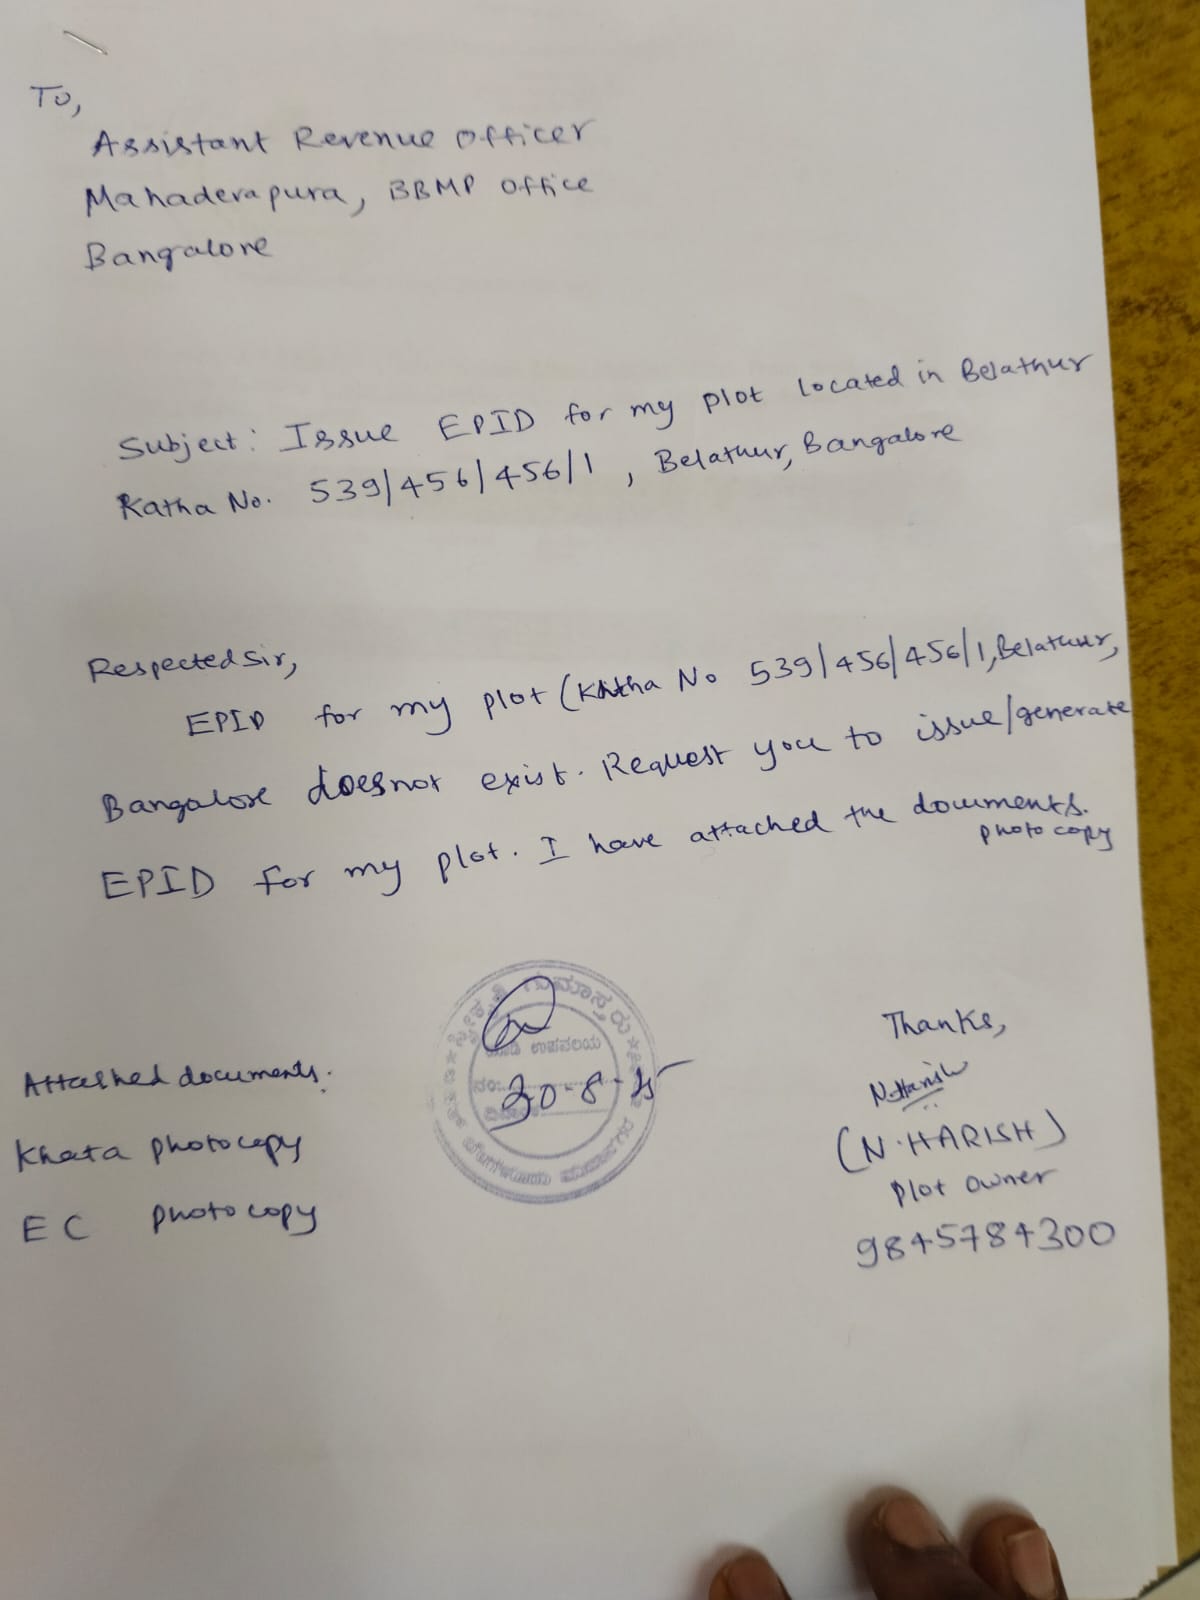 To,
Assistant Revenue Officer
Mahadevapura, BBMP Office
Bangalore
Subject: Issue EPID for my plot located in Belathur
Katha No. 539/456/456/1, Belathur, Bangalore
Respected Sir,
EPID for my plot (Khtha No 539/456/456/1, Belathur,
Bangalore doesnot exist. Request you to issue/generate
EPID for my plot. I have attached the documents.
photo copy
Thanks,
N. Harish
(N. HARISH)
Plot owner
9845784300
Attached documents:
Khata photocopy
EC photo copy
ಸ್ವೀಕೃತಿ ಗುಮಾಸ್ತರು
ಉಪವಲಯ
ನಂ:
30-8-25